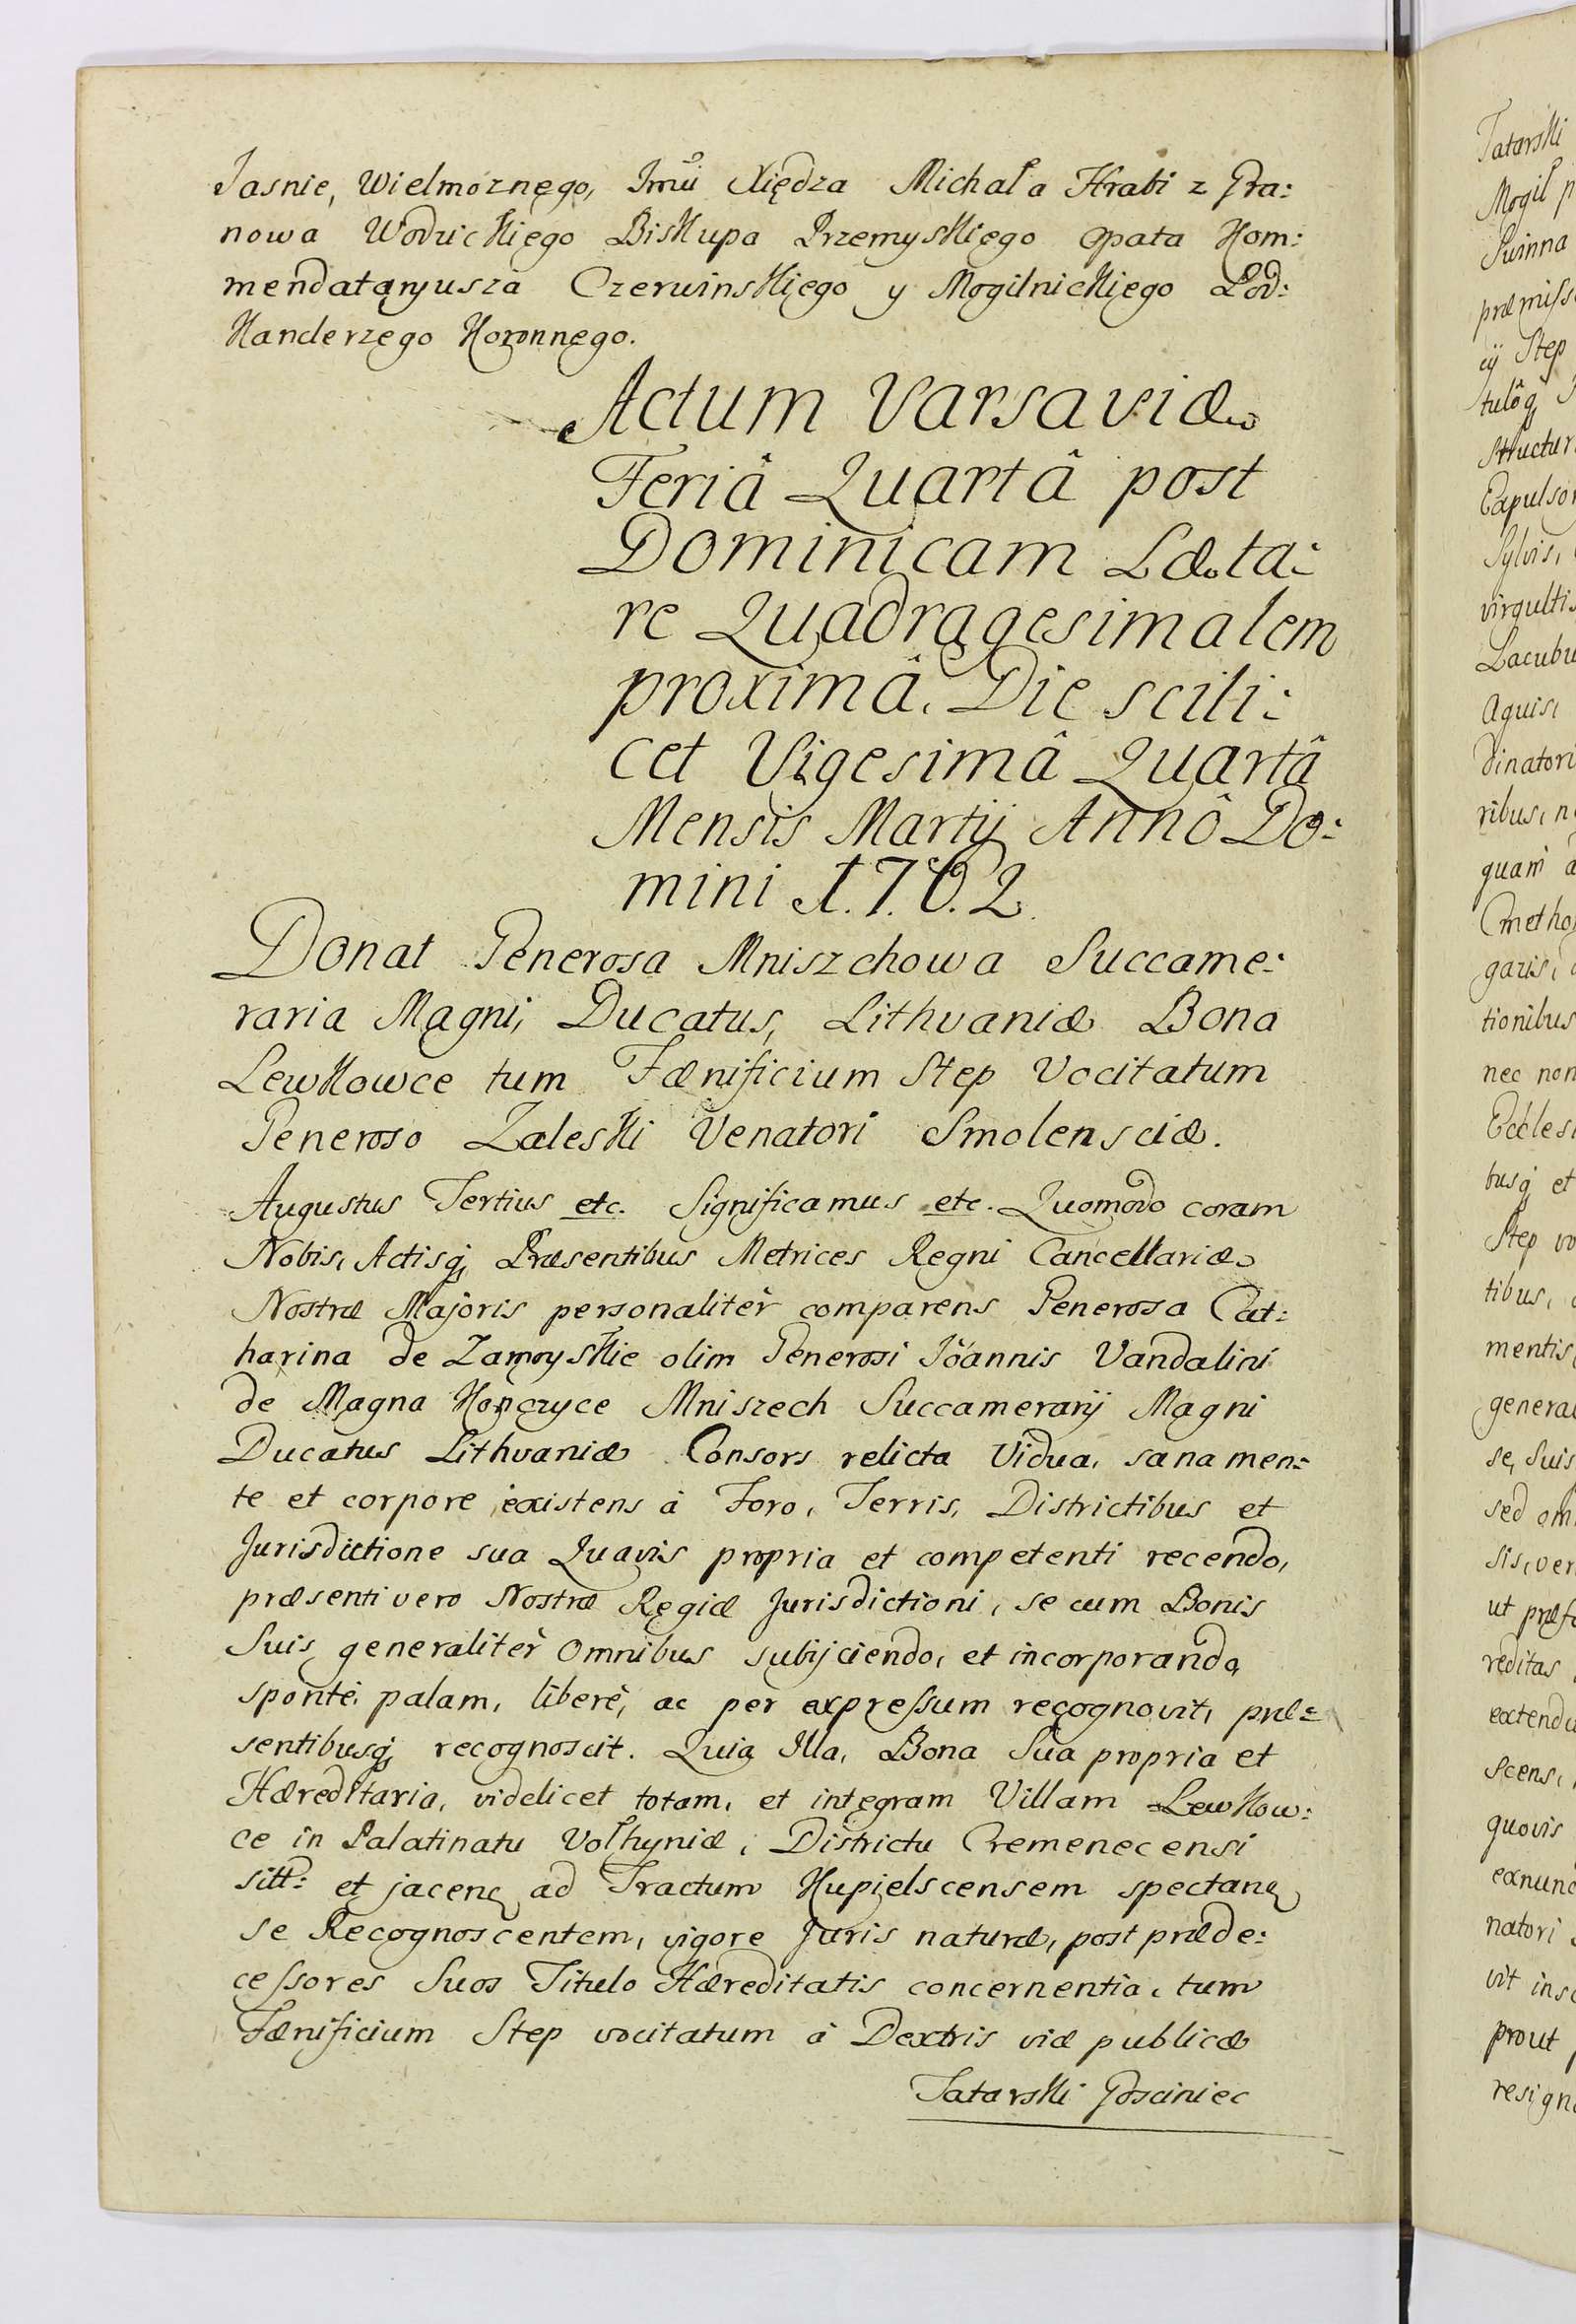 Jasnie, Wielmoznego, Jmci Xiędza Michała Hrabi z Gra:
nowa Wodzickiego Biskupa Przemyskiego Opata Kom:
mendataryusza Czerwinskiego y Mogilnickiego Pod:
Kanclerzego Koronnego.
Actum Varsaviæ
Feriâ Quartâ post
Dominicam Læta:
re Quadragesimalem
proximâ, Die scili:
cet Vigesimâ Quartâ
Mensis Martij Annô Do:
mini 1.7.6.2
Donat Generosa Mniszchowa Succame:
raria Magni, Ducatus, Lithvaniæ Bona
Lewkowce tum Fænificium Step Vocitatum
Generoso Zaleski Venatori Smolensciæ.
Augustus Tertius etc. Significamus etc. Quomodo coram
Nobis, Actisq, Præsentibus Metrices Regni Cancellariæ
Nostræ Majoris personalitèr comparens Generosa Cat:
harina de Zamoyskie olim Generosi Jôannis Vandalini
de Magna Konczyce Mniszech Succamerarij Magni
Ducatus Lithvaniæ Consors relicta Vidua, sana men:
te et corpore existens à Foro, Terris, Districtibus et
Jurisdictione sua Quavis propria et competenti recendo,
præsenti vero Nostræ Regiæ Jurisdictioni, se cum Bonis
Suis generalitèr Omnibus subijciendo, et incorporando,
spontè, palam, liberè, ac per expressum recognovit, præ:
sentibusq, recognoscit. Quia Illa, Bona Sua propria et
Hæreditaria, videlicet totam, et integram Villam Lewkow:
ce in Palatinatu Volhyniæ, Districtu Cremenecensi
sitt: et jacen ad Tractum Kupielscensem spectan
se Recognoscentem, vigore Juris naturæ, post præde:
cessores Suos Titulo Hæreditatis concernentia, tum
Fænificium Step vocitatum à Dextris viæ publicæ
Tatarski Gosciniec
Tatarski
Mogił
Swinna
præmiss
cij Step
tulôq
structur
Expulso
Sylvis,
virgultis
Lacubu
Aquis,
dinatori
ribus, n
quam a
Cmetho
garis,
tionibus
nec non
Ecclesi
busq et
Step vo
tibus,
mentis,
genera
se, Suis
sed om
sis, ver
ut præf
reditas
extendu
scens,
quovis
exnunc
natori
vit ins
prout
resign